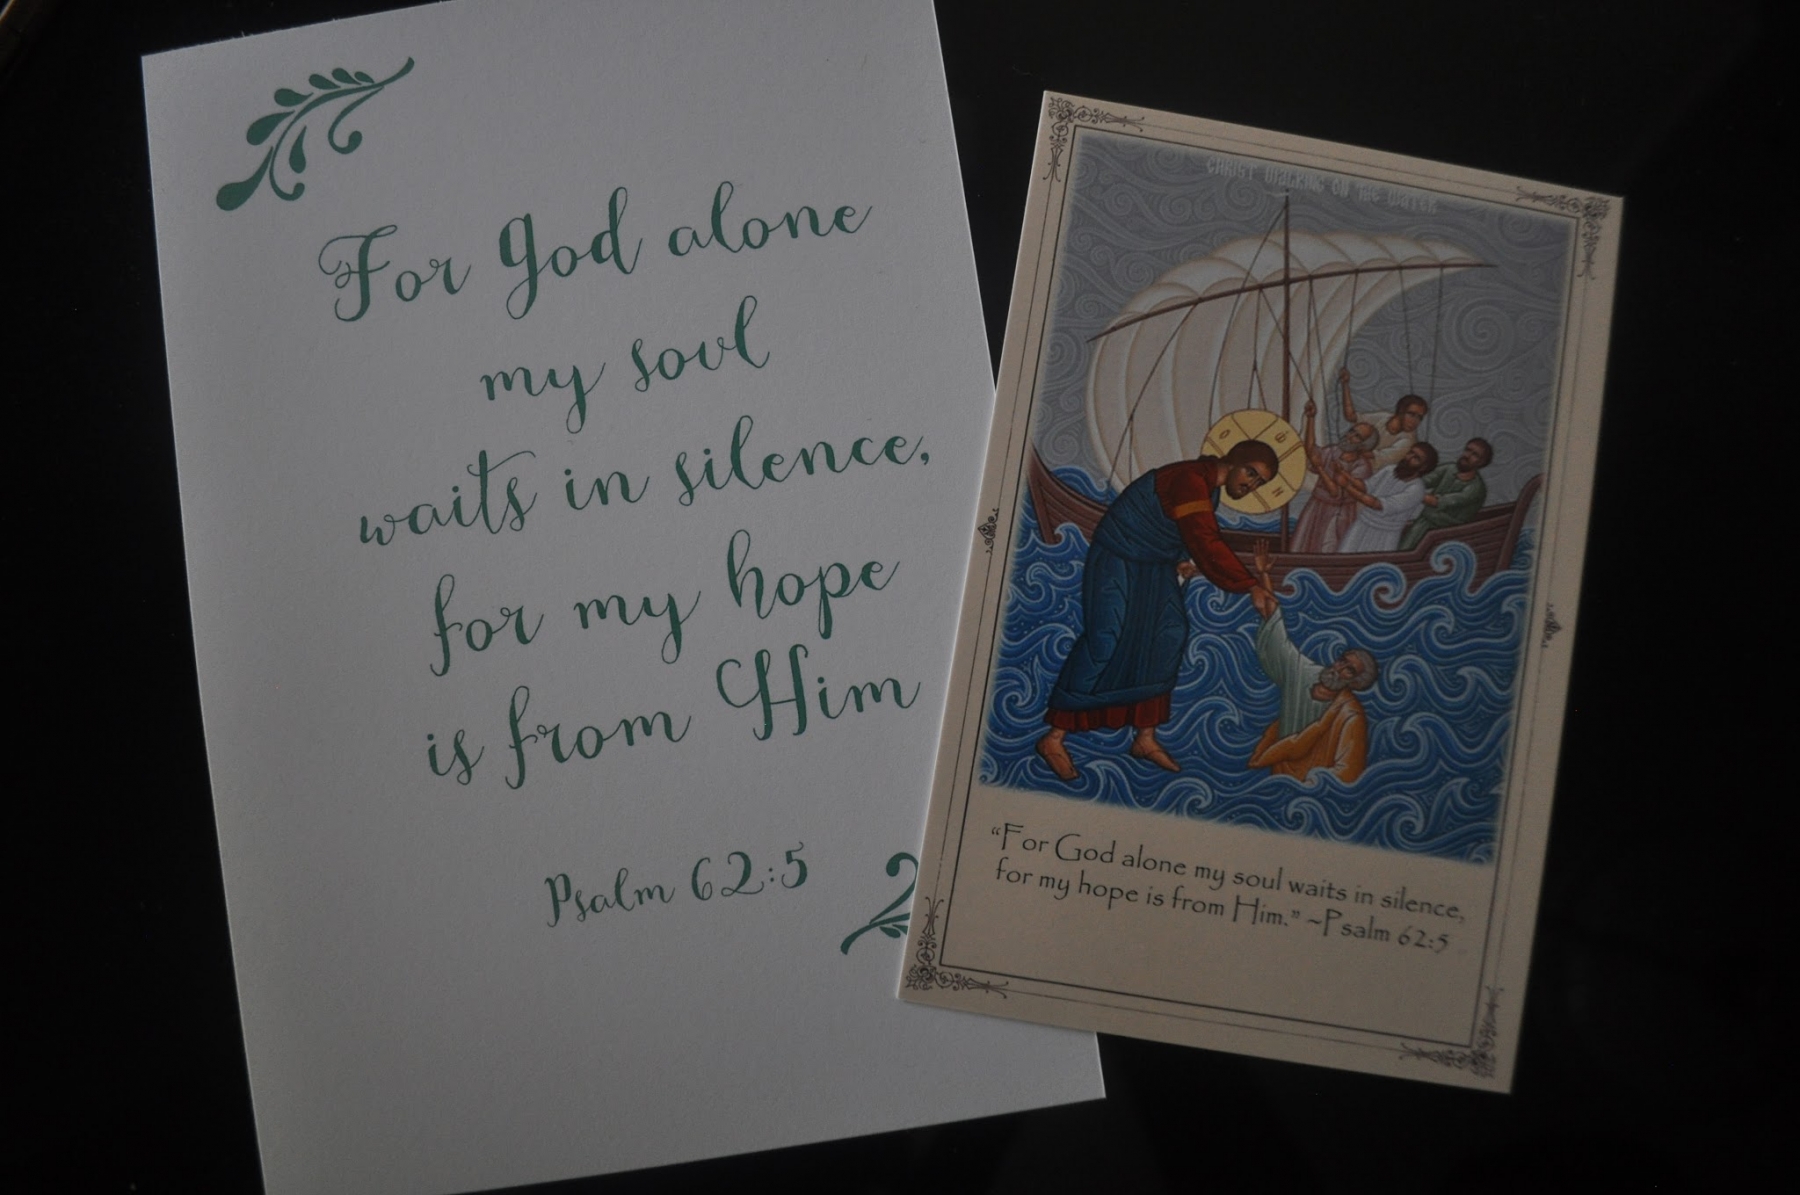 For God alone
my soul
waits in silence,
for my hope
is from Him
Psalm 62:5
CHRIST WALKING ON THE WATER
Ο Ѡ Ν
“For God alone my soul waits in silence,
for my hope is from Him.” ~Psalm 62:5